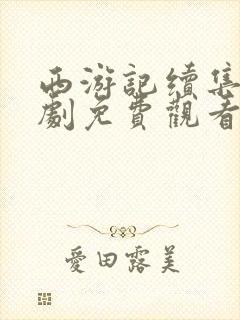 西游記續集
劇免費觀看
愛田露美